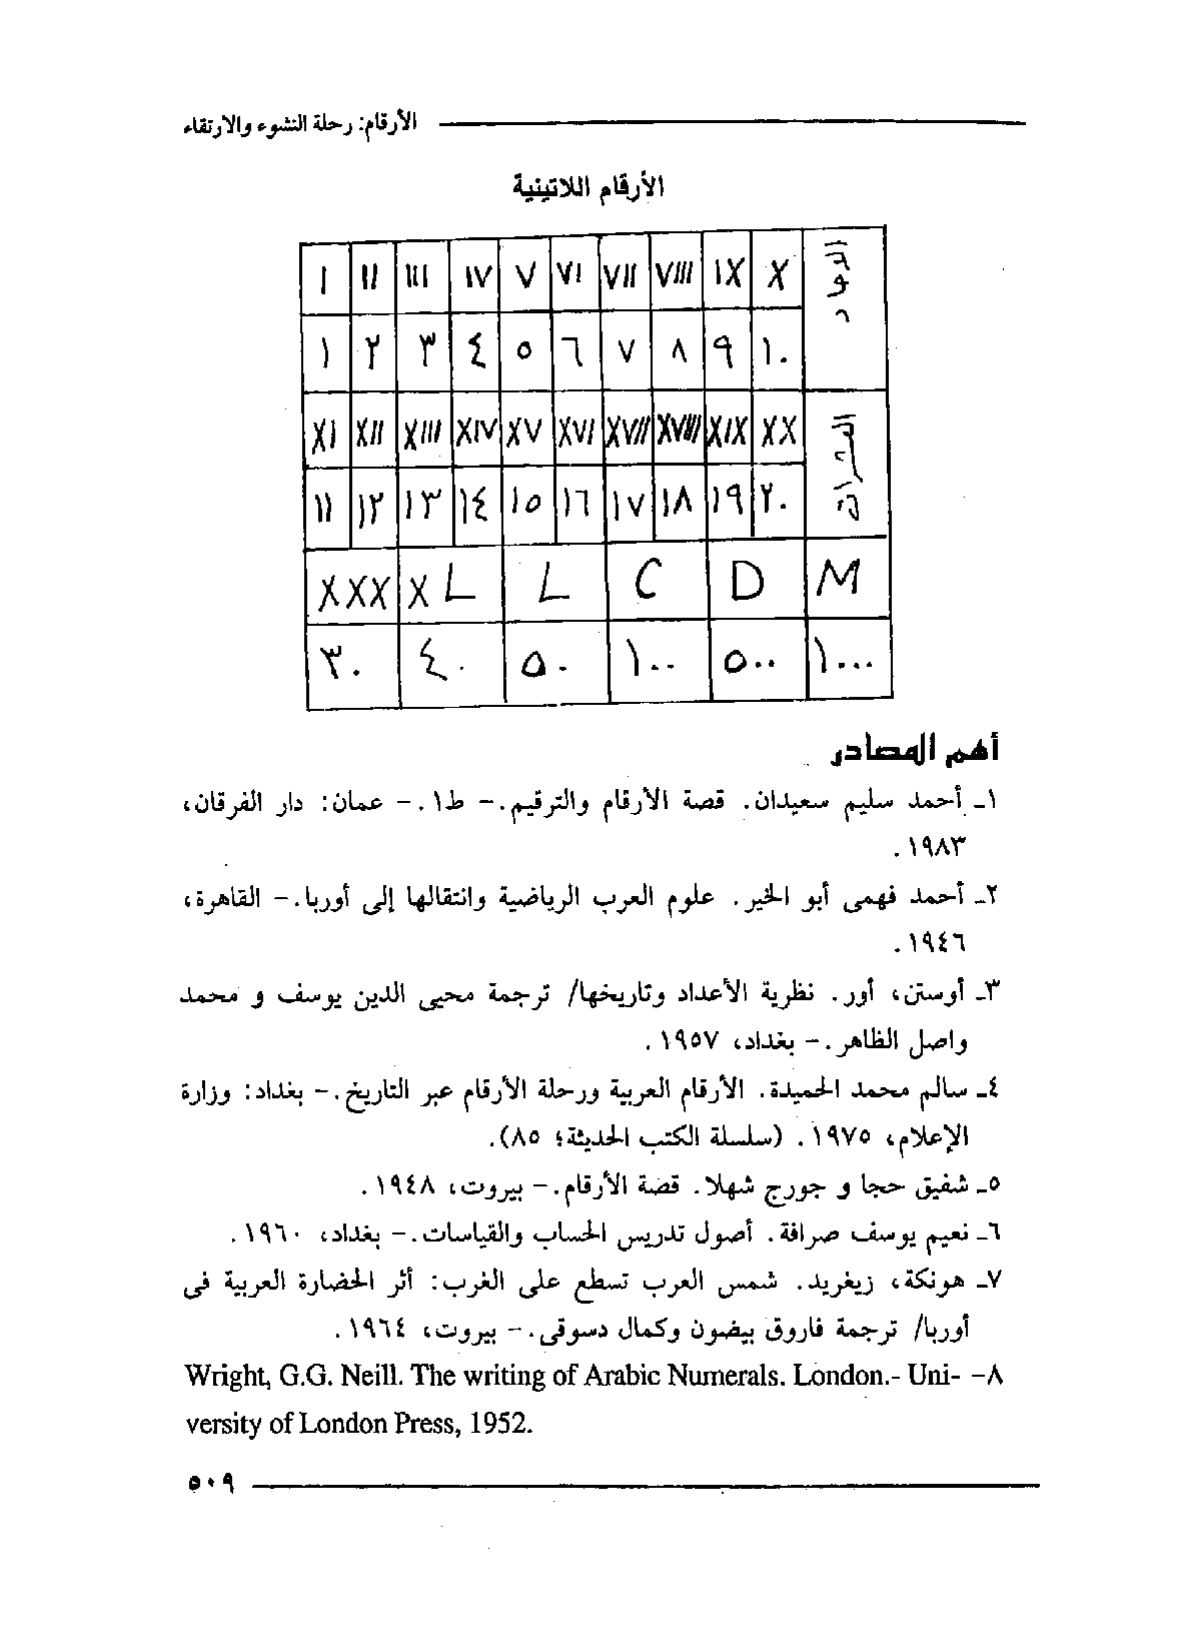 الأرقام: رحلة النشوء والارتقاء
الأرقام اللاتينية
I II III IV V VI VII VIII IX X الاحاد
١ ٢ ٣ ٤ ٥ ٦ ٧ ٨ ٩ ١٠
XI XII XIII XIV XV XVI XVII XVIII XIX XX العشرات
١١ ١٢ ١٣ ١٤ ١٥ ١٦ ١٧ ١٨ ١٩ ٢٠
XXX XL L C D M
٣٠ ٤٠ ٥٠ ١٠٠ ٥٠٠ ١٠٠٠
أهم المصادر
١ـ أحمد سليم سعيدان. قصة الأرقام والترقيم.- ط١.- عمان: دار الفرقان،
١٩٨٣.
٢ـ أحمد فهمى أبو الخير. علوم العرب الرياضية وانتقالها إلى أوربا.- القاهرة،
١٩٤٦.
٣ـ أوستن، أور. نظرية الأعداد وتاريخها/ ترجمة محيى الدين يوسف و محمد
واصل الظاهر.- بغداد، ١٩٥٧.
٤ـ سالم محمد الحميدة. الأرقام العربية ورحلة الأرقام عبر التاريخ.- بغداد: وزارة
الإعلام، ١٩٧٥. (سلسلة الكتب الحديثة؛ ٨٥).
٥ـ شفيق حجا و جورج شهلا. قصة الأرقام.- بيروت، ١٩٤٨.
٦ـ نعيم يوسف صرافة. أصول تدريس الحساب والقياسات.- بغداد، ١٩٦٠.
٧ـ هونكة، زيغريد. شمس العرب تسطع على الغرب: أثر الحضارة العربية فى
أوربا/ ترجمة فاروق بيضون وكمال دسوقى.- بيروت، ١٩٦٤.
٨- Wright, G.G. Neill. The writing of Arabic Numerals. London.- Uni-
versity of London Press, 1952.
٥٠٩